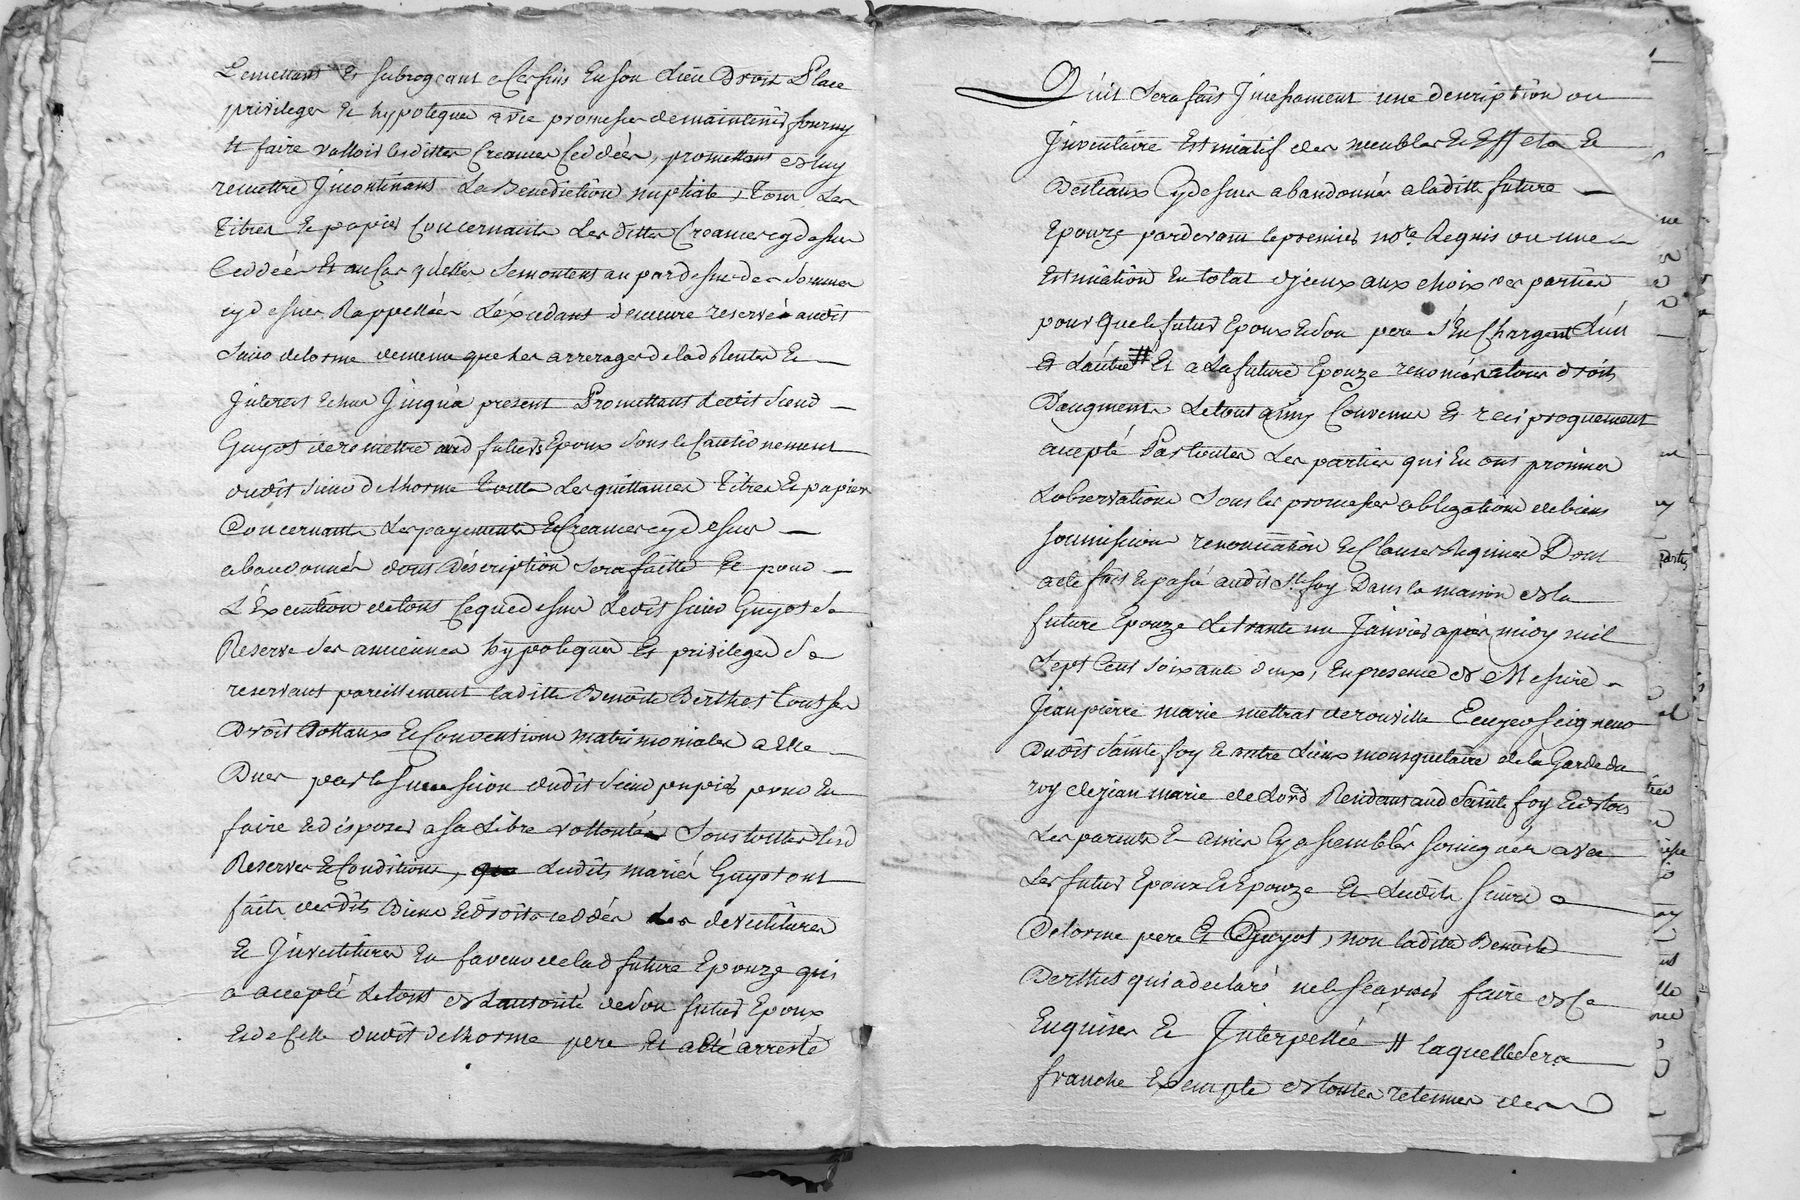 Lemettant Et subrogeant a Ces fins En son Lieu Droit Place
privileges Et hypoteques avec promesse de maintenir fournir
Et faire valloir lesdittes Creances Ceddées, promettant de luy
remettre Jncontinant La Benediction nuptiale, Tous Les
Titres Et papiers Concernants Les dittes Creances cy dessus
Ceddées Et au Cas qu'elles Semontent au par dessus des Sommes
cy dessus Rappellées L'éxcedant demeure reservé audit
Sieur delorme de meme que les arrerages de lad Rente Et
Jnterets Echus Jusqu'a présent Promettant Ledit Sieur
Guyot de remettre aud futur Epoux Sous le Cautionnement
dudit Sieur delhorme Toutte Les quittances Titres Et papiers
Concernants Les payements Et Creances cy dessus
abandonnés dont Déscription Sera faitte Et pour
L'Exécution de tout Ce que dessus Ledit Sieur Guyot Se
Reserve Ses anciennes hypoteques Et privileges Se
reservant pareillement laditte Benoite Berthet Tout Ses
Droits Dottaux Et Conventions matrimoniales a Elle
Dues par la Succession dudit Sieur pupier pour En
faire Et disposer a Sa Libre vollonté Sous touttes Lesd
Reserves Et Conditions, Lesdits mariés Guyot ont
faits desdits Biens Et droits ceddés Les devetitures
Et Jnvetitures En faveur de lad future Epouze qui
a accepté Le tout de L'autorité de Son futur Epoux
Et de Celle dudit delhorme pere Et a Eté arresté
Qu'il Sera fait Jncessament une description ou
Jnventaire Estimatif des meubles Et Effets Et
Bestiaux Cy dessus abandonnés a laditte future
Epouze pardevant le premier no.re Requis ou une
Estimation En total d'jceux aux choix des parties
pour que le futur Epoux Et Son pere S'En Chargent L'un
Et L'autre # Et a La future Epouze renoncé a tous droits
D'augments Le tout ainsy Convenu Et reciproquement
accepté Par toutes Les parties qui En ont promises
L'observations Sous les promesses obligations de biens
Soumissions renonciation Et Clauses Requises Dont
acte fait Et passé audit Ste foy Dans la maison de la
future Epouze Le trante un Janvier après midy mil
Sept Cent Soixante deux, En presence de Messire
Jean pierre marie mettras de rouville Ecuyer Seigneur
Dudit Sainte foy Et autre Lieux mousquetaire de la Garde du
roy de jean marie de Lord Residant aud Sainte foy Et de tous
Les parents Et amis Cy assemblés Soussignés avec
Les futur Epoux Et Epouze Et Lesdits Sieurs
Delorme pere Et Guyot, non ladite Benoite
Berthet qui a declaré ne le Scavoir faire de Ce
Enquise Et Jnterpellée # laquelle Sera
franche Exempte de toutes retenues des